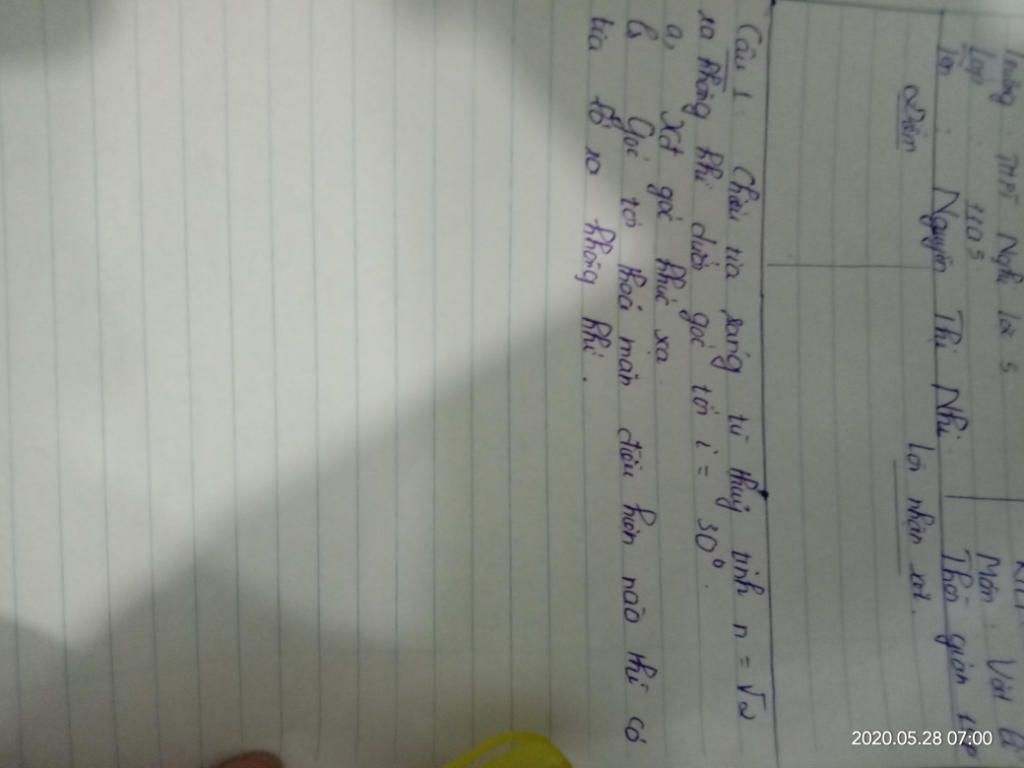 Trường THPT Nghi Lộc 5
Môn: Vật Lí
Lớp 11A5
Thời gian
Tên: Nguyễn Thị Nhi
Điểm
Lời nhận xét.
Câu 1: Chiếu tia sáng từ thuỷ tinh n = √2
ra không khí dưới góc tới i = 30°.
a, góc khúc xạ
b, Góc tới thoả mãn điều kiện nào thì có
tia ló ra không khí.
2020.05.28 07:00